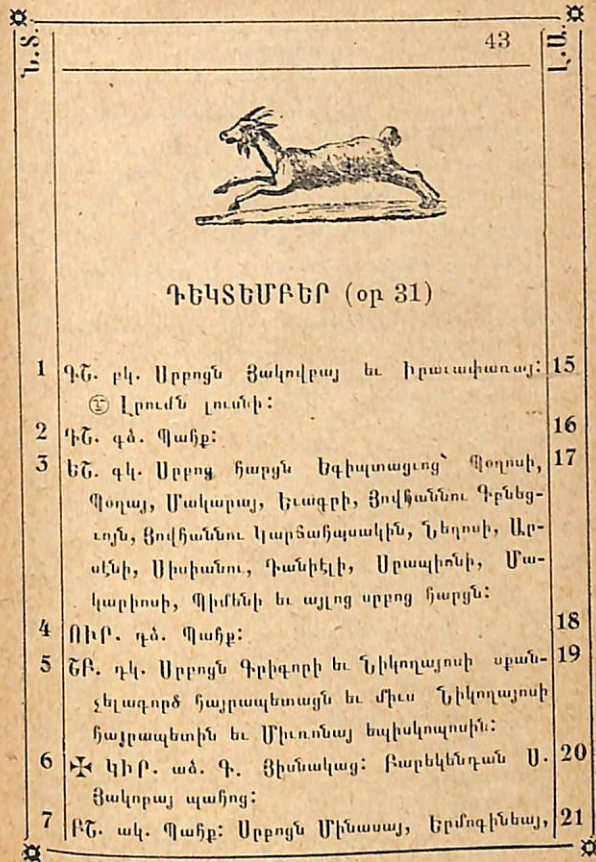 Ն.Տ. 43 Լ.Ա.
ԴԵԿՏԵՄԲԵՐ (օր 31)
1 ԳՇ. բկ. Սրբոցն Յակովբայ եւ Իրաւափառայ: 15
Լրումն լուսնի:
2 ԴՇ. գձ. Պահք: 16
3 ԵՇ. գկ. Սրբոց հարցն Եգիպտացւոց՝ Պօղոսի, 17
Պօղայ, Մակարայ, Եւագրի, Յովհաննու Գբնեց-
ւոյն, Յովհաննու Կարճահպսակին, Նեղոսի, Ար-
սէնի, Սիսիանու, Դանիէլի, Սրապիոնի, Մա-
կարիոսի, Պիմենի եւ այլոց սրբոց հարցն:
4 ՈՒՐ. դձ. Պահք: 18
5 ՇԲ. դկ. Սրբոցն Գրիգորի եւ Նիկողայոսի սքան- 19
չելագործ հայրապետացն եւ միւս Նիկողայոսի
հայրապետին եւ Միւռոնայ եպիսկոպոսին:
6 ✠ ԿԻՐ. աձ. Գ. Յիսնակաց: Բարեկենդան Ս. 20
Յակոբայ պահոց:
7 ԲՇ. ակ. Պահք: Սրբոցն Մինասայ, Երմոգինեայ, 21